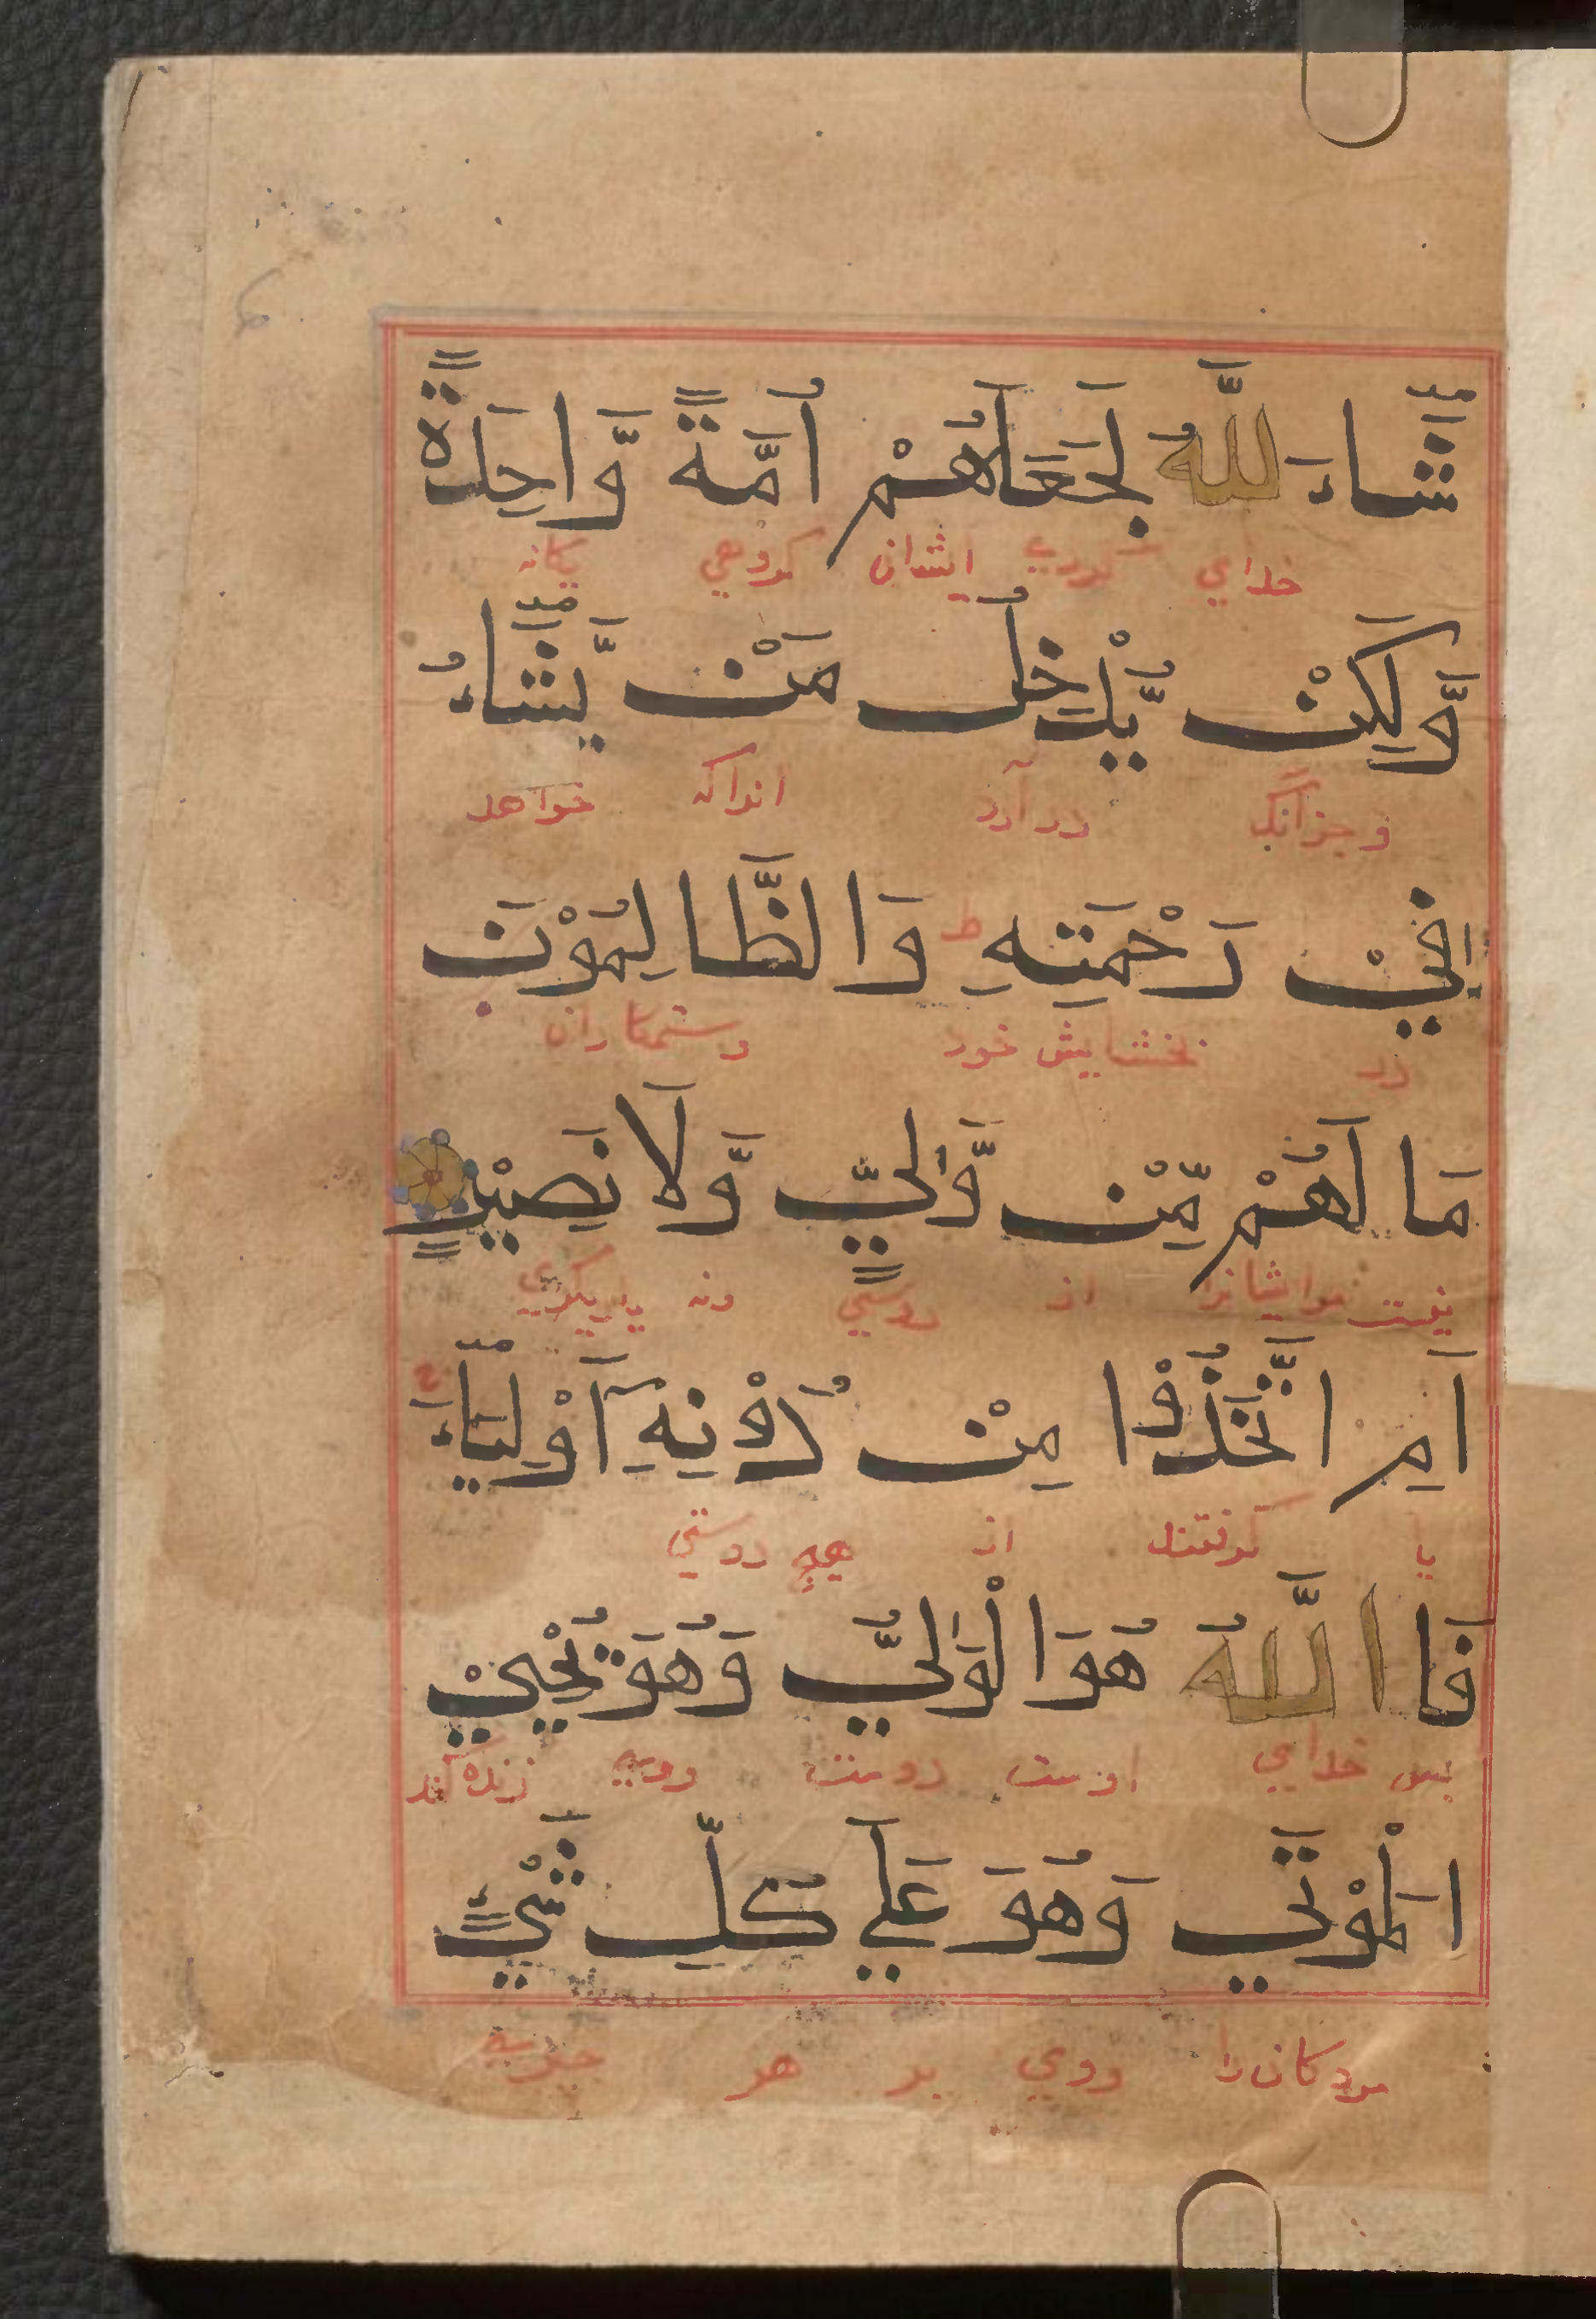 شَاءَ اللَّهُ لَجَعَلَهُمْ أُمَّةً وَّاحِدَةً
خداي کردی ایشان کروهي یکانه
وَّلَكِنْ يُّدْخِلُ مَنْ يَّشَاءُ
و جزانک در آرد انراکه خواهد
فِيْ رَحْمَتِهِ ط وَالظَّالِمُوْنَ
در بخشایش خود و ستمکاران
مَا لَهُمْ مِّنْ وَّلِيٍّ وَّلَا نَصِيْرٍ
نیست مرایشانرا از دوستي ونه یاریکري
اَمِ اتَّخَذُوْا مِنْ دُوْنِهِ آَوْلِيَاءَ
یا کرفتند از دوستي
فَاللَّهُ هُوَ الْوَلِيُّ وَهُوَ يُحْيِيْ
بس خدای اوست دوست ووی زنده کند
الْمَوْتَي وَهُوَ عَلَي كُلِّ شَيْءٍ
مردکان را ووي بر هر چیزی